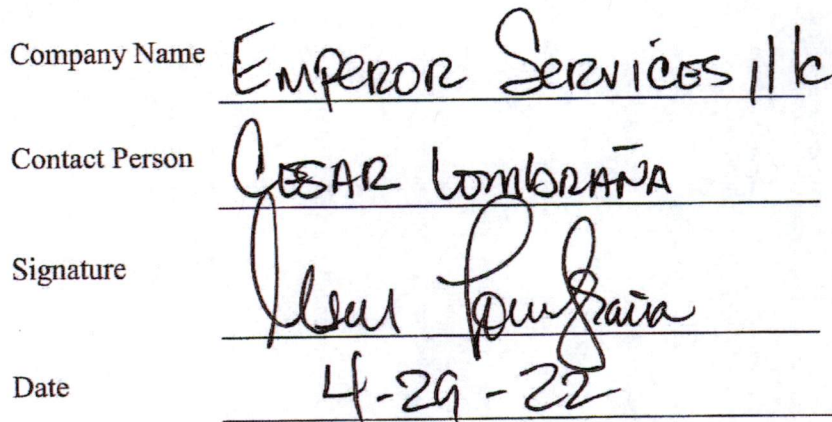 Company Name Emperor Services, llc
Contact Person Cesar Lombraña
Signature Cesar Lombraña
Date 4-29-22